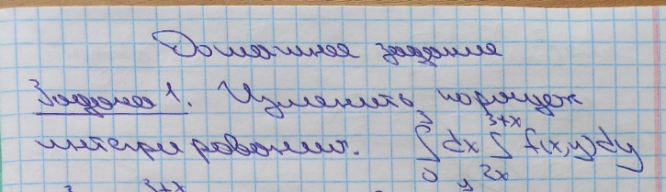 Домашнее задание
Задача 1. Изменить порядок
интегрирования. ∫₀³ dx ∫₂ₓ³⁺ˣ f(x,y)dy
3+x